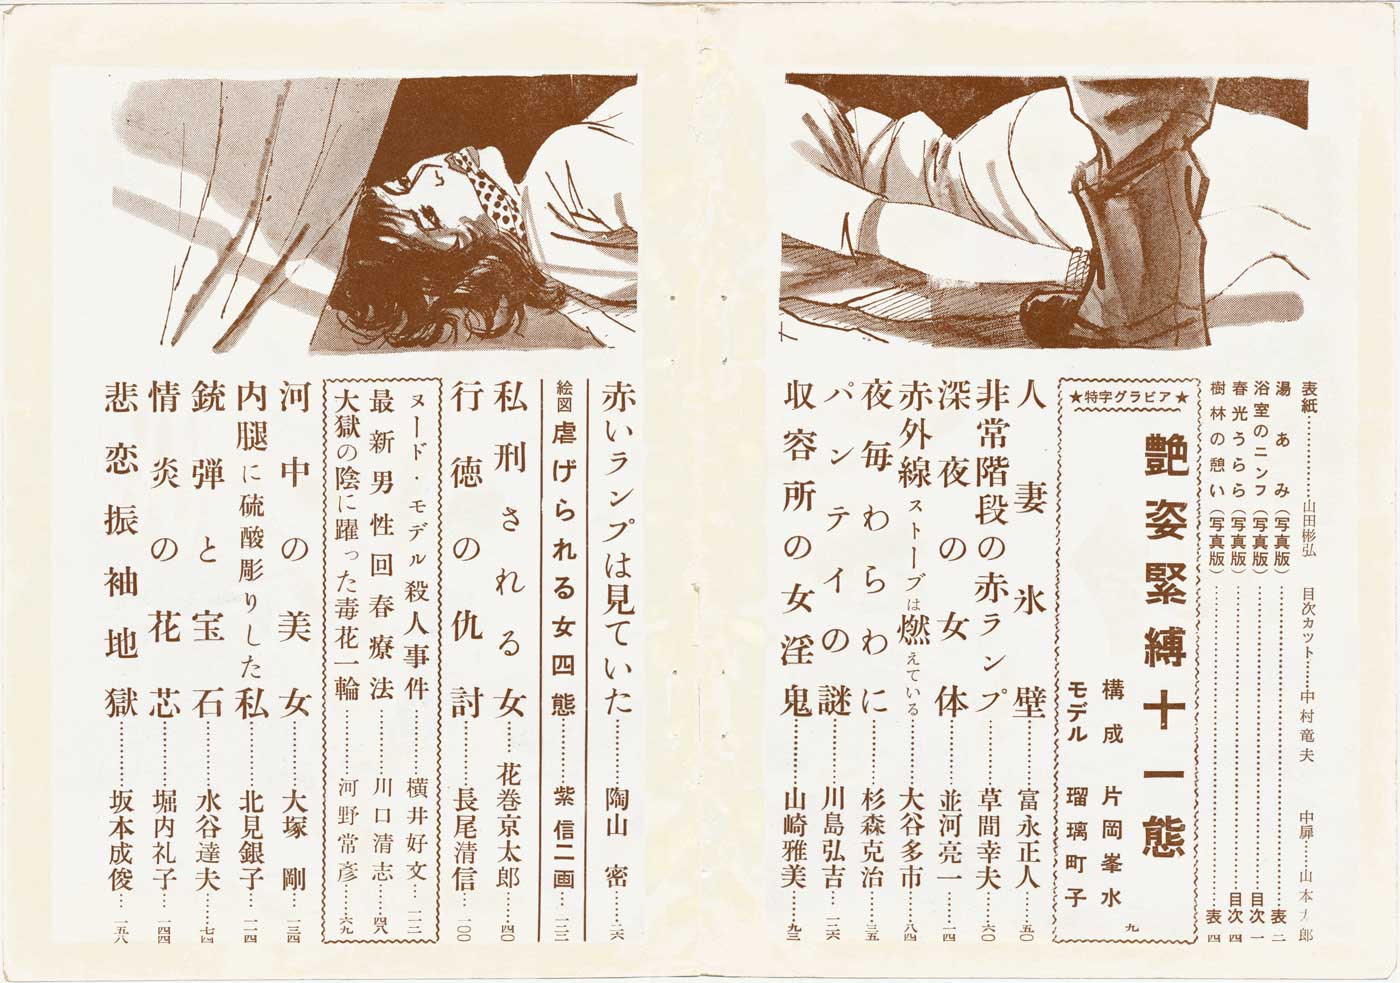 表紙…………山田彬弘　目次カツト……中村竜夫　中扉……山本九郎
湯あみ（写真版）…………表二
浴室のニンフ（写真版）…………目次一
春光うらら（写真版）…………目次四
樹林の憩い（写真版）…………表四
★特字グラビア★
艶姿緊縛十一態
構成　片岡峯水
モデル　瑠璃町子
九
人妻氷壁……富永正人…五〇
非常階段の赤ランプ……草間幸夫…六〇
深夜の女体……並河亮一…一四
赤外線ストーブは燃えている……大谷多市…八四
夜毎わらわに……杉森克治…三五
パンテイの謎……川島弘吉…一二六
収容所の女淫鬼……山崎雅美…九三
赤いランプは見ていた……陶山密…二六
絵図 虐げられる女四態……紫信二画…一二二
私刑される女……花巻京太郎…四〇
行徳の仇討……長尾清信…一〇〇
ヌード・モデル殺人事件……横井好文…一一二
最新男性回春療法……川口清志…四八
大獄の陰に躍った毒花一輪……河野常彦…六九
河中の美女……大塚剛…一三四
内腿に硫酸彫りした私……北見銀子…一一四
銃弾と宝石……水谷達夫…七四
情炎の花芯……堀内礼子…一四四
悲恋振袖地獄……坂本成俊…一五八